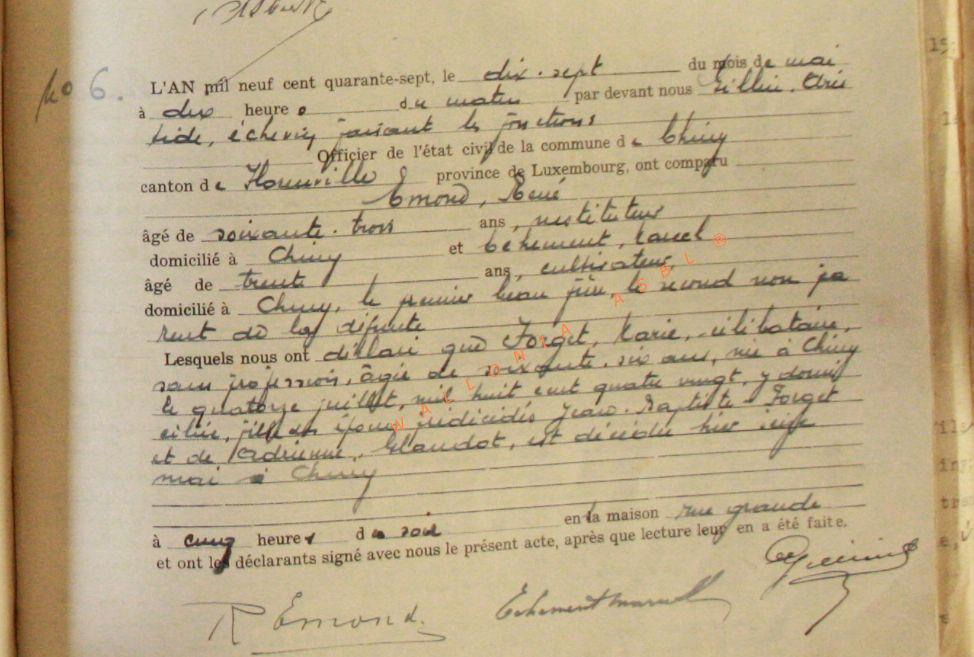 No 6.
L'AN mil neuf cent quarante-sept, le dix-sept du mois de mai
à dix heures du matin par devant nous Gillin, Aris
tide, échevin faisant les fonctions
Officier de l'état civil de la commune de Chiny
canton de Florenville province de Luxembourg, ont comparu
Emond, René
âgé de soixante-trois ans, instituteur
domicilié à Chiny et Echement, Marcel
âgé de trente ans, cultivateur,
domicilié à Chiny, le premier beau frère, le second non pa
rent de la défunte
Lesquels nous ont déclaré que Forget, Marie, célibataire,
sans profession, âgée de soixante-six ans, née à Chiny
le quatorze juillet, mil huit cent quatre vingt, y domi
ciliée, fille des époux prédécédés Jean-Baptiste Forget
et de Adrienne, Glaudot, est décédée hier seize
mai à Chiny
à cinq heures du soir en la maison rue grande
et ont les déclarants signé avec nous le présent acte, après que lecture leur en a été faite.
R Emond. Echement Marcel
WALLONIA ASBL ©